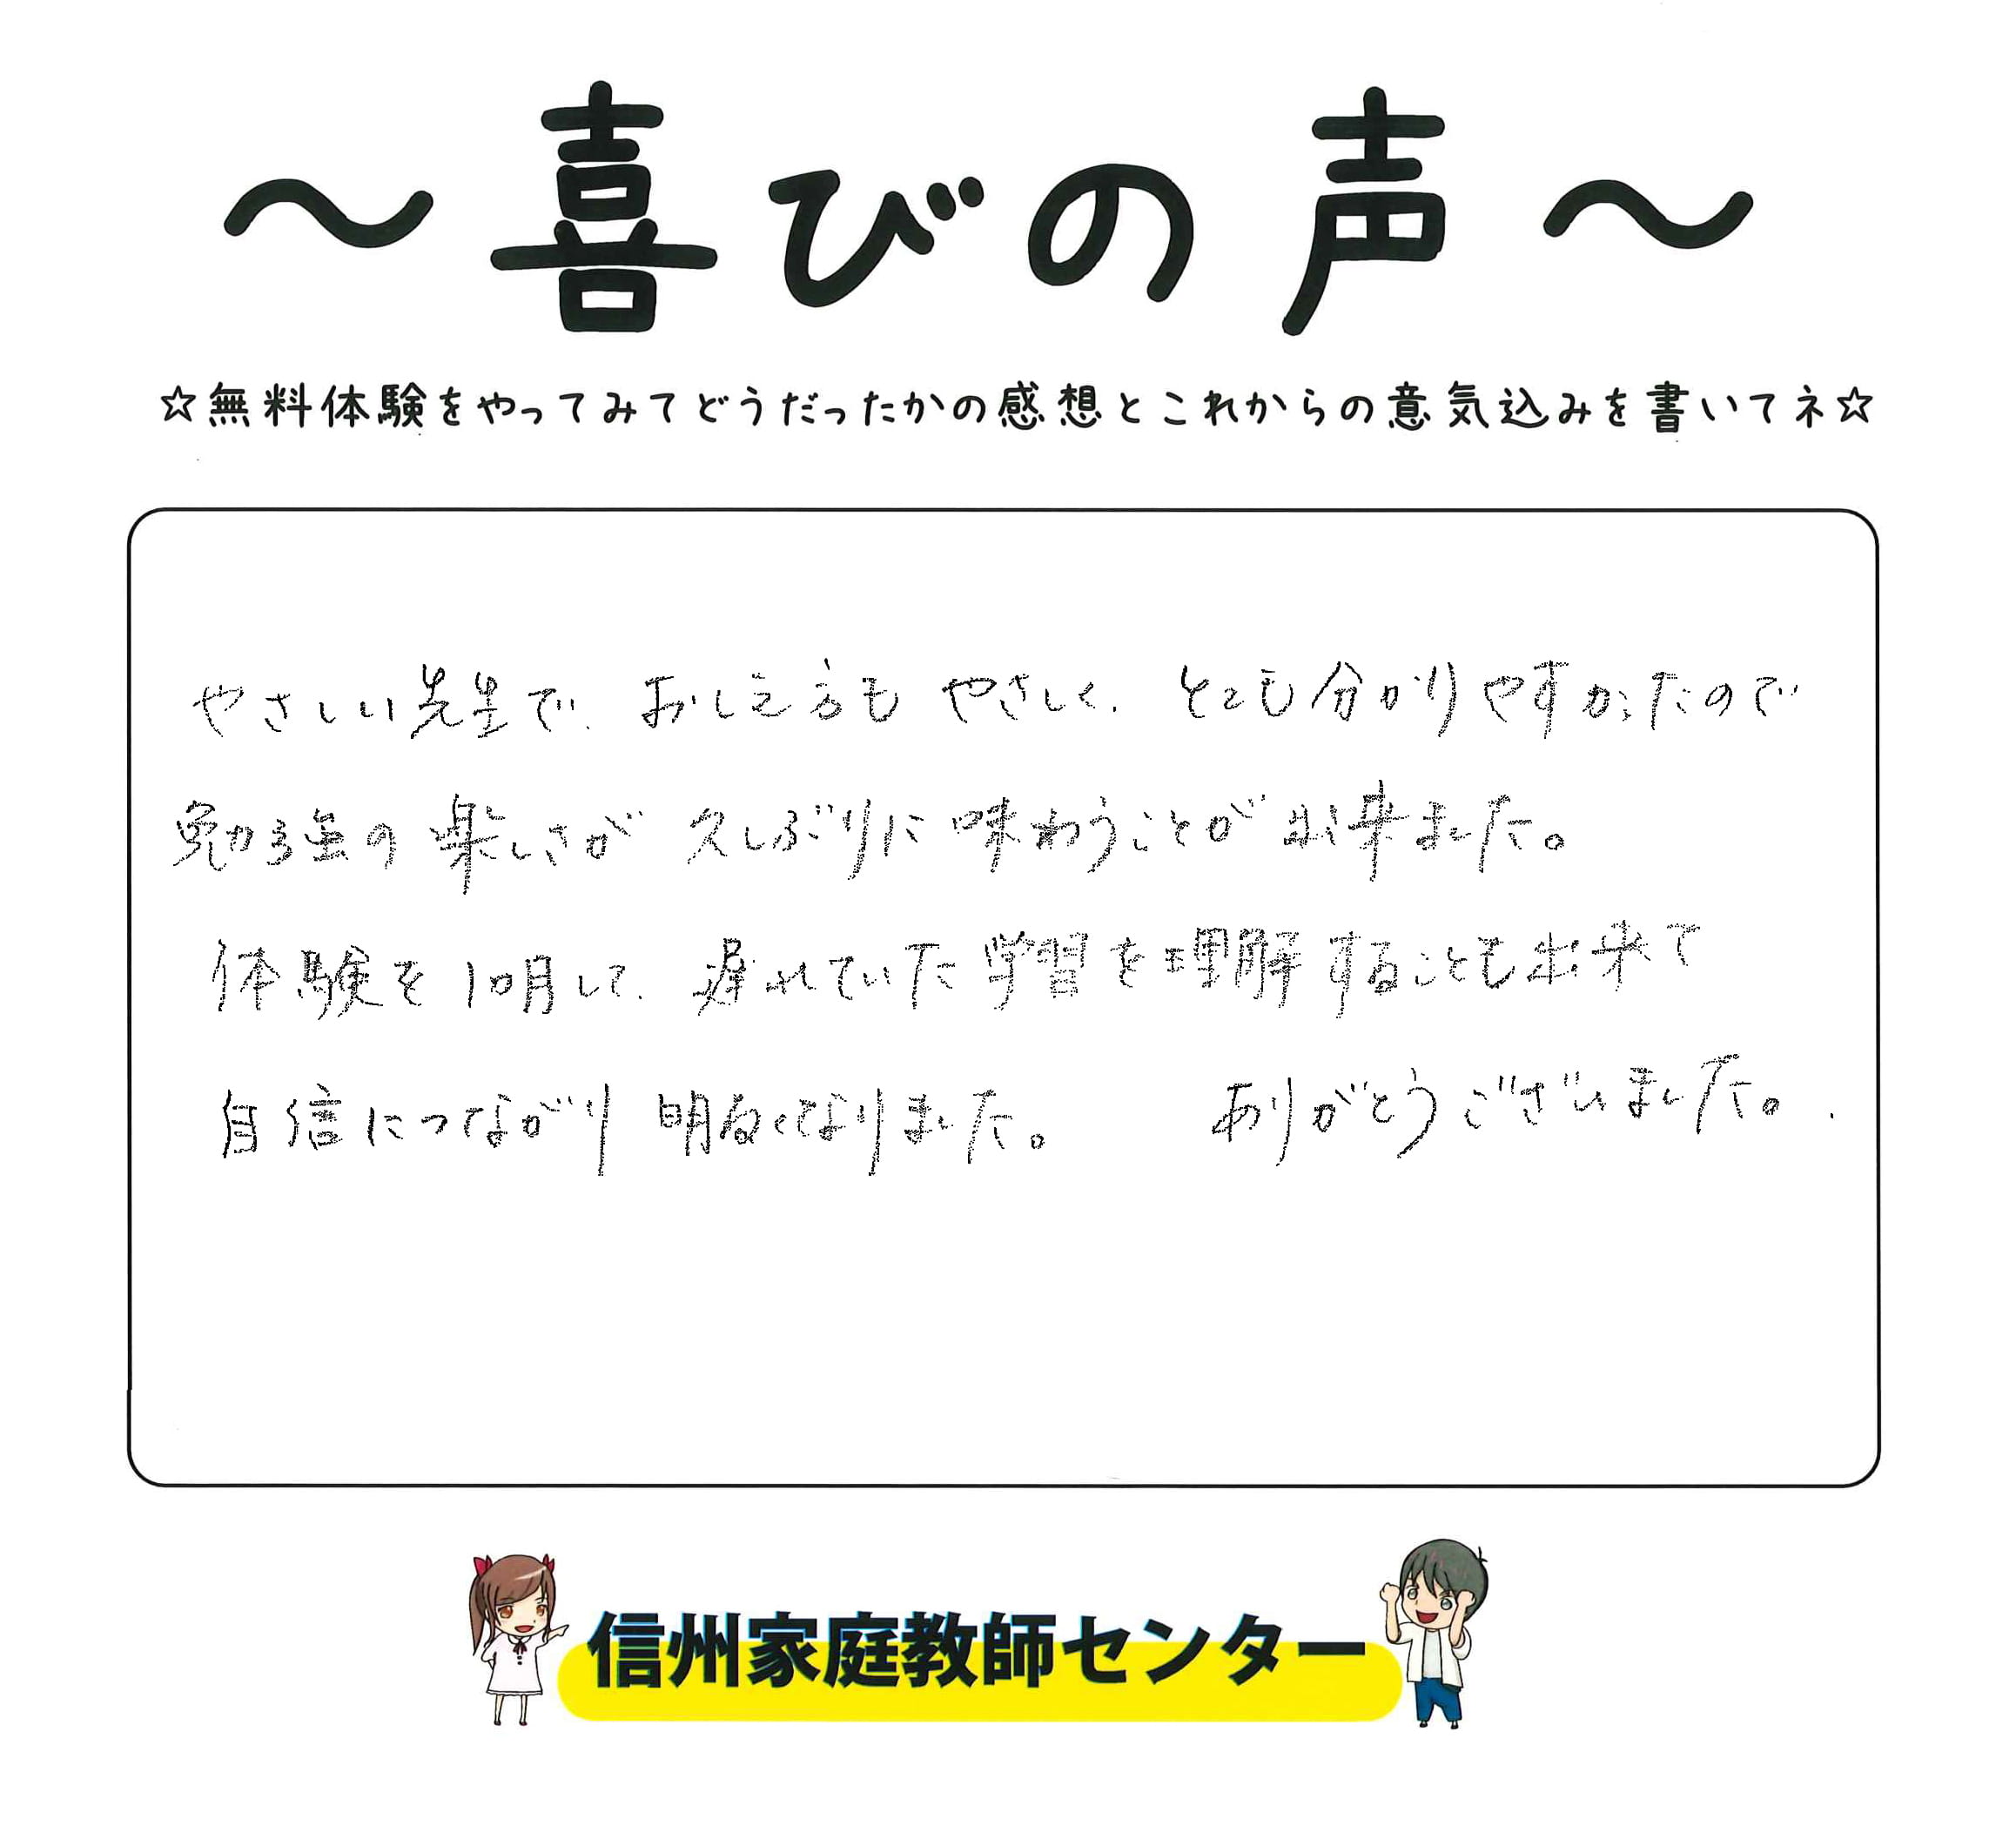 ～喜びの声～
☆無料体験をやってみてどうだったかの感想とこれからの意気込みを書いてネ☆
やさしい先生で、おしえ方もやさしく、とても分かりやすかったので
勉強の楽しさが久しぶりに味わうことが出来ました。
体験を1ヶ月して、遅れていた学習を理解することも出来て
自信につながり明るくなりました。 ありがとうございました。
信州家庭教師センター